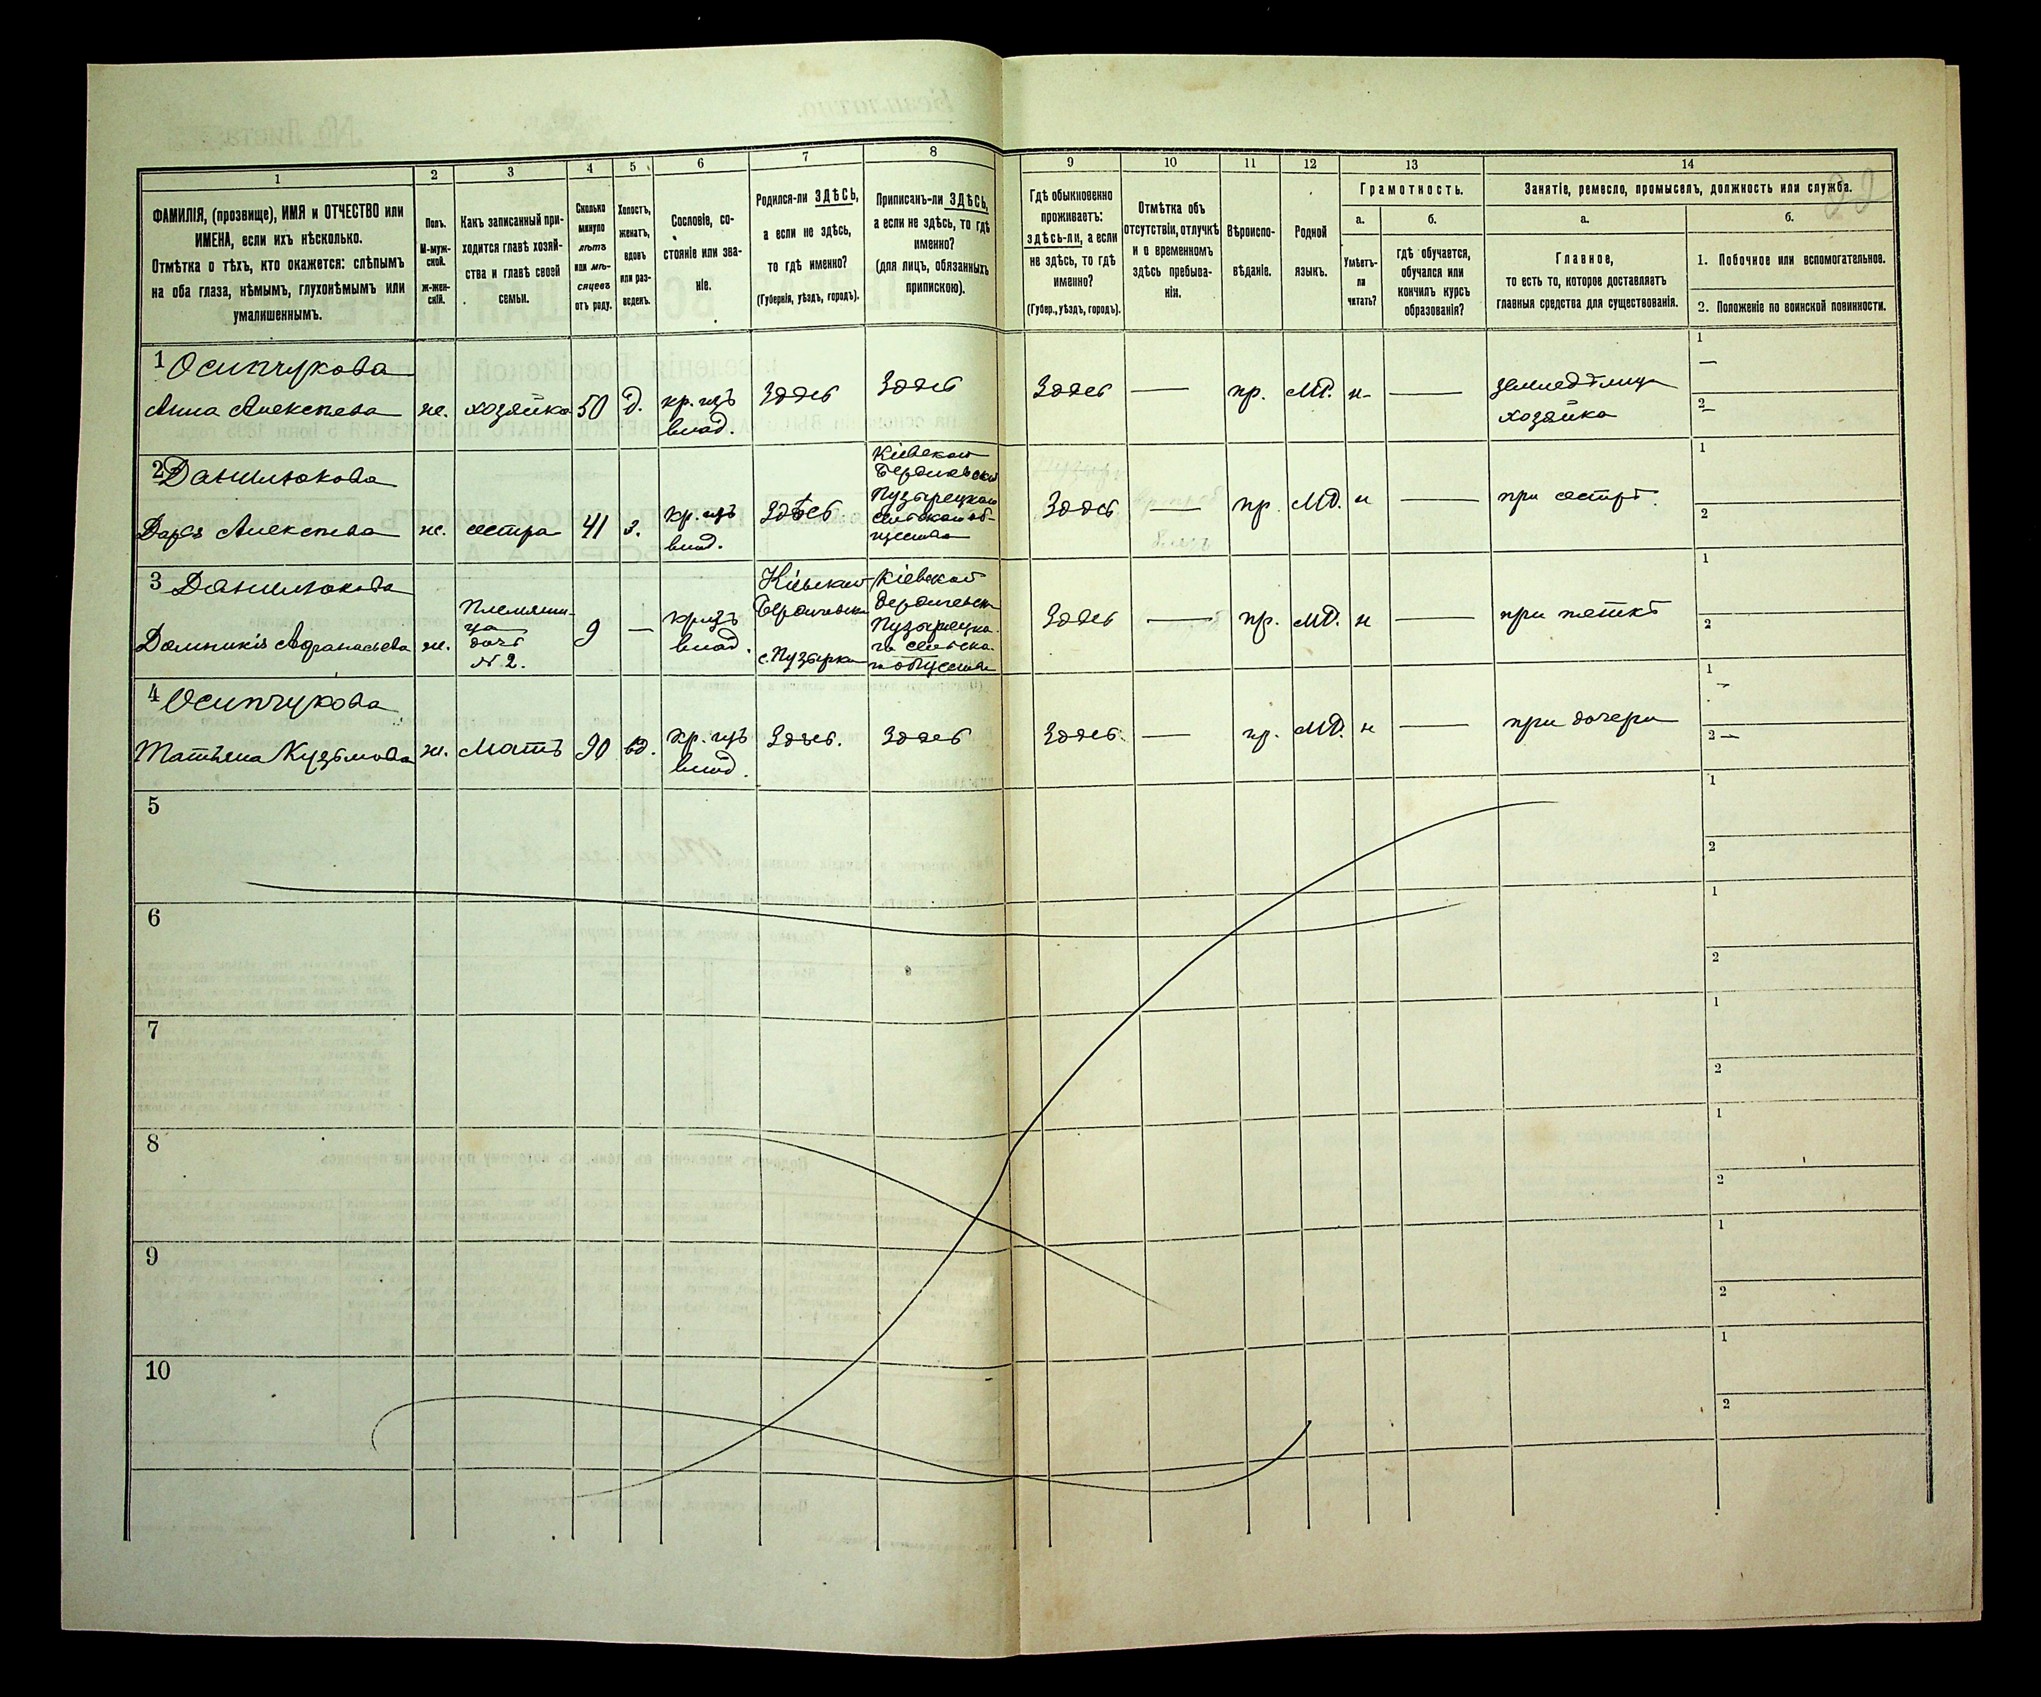 1 2 3 4 5 6 7 8 9 10 11 12 13 14
ФАМИЛІЯ, (прозвище), ИМЯ и ОТЧЕСТВО или
ИМЕНА, если ихъ нѣсколько.
Отмѣтка о тѣхъ, кто окажется: слѣпымъ
на оба глаза, нѣмымъ, глухонѣмымъ или
умалишеннымъ.
Полъ.
М-муж-
ской.
ж-жен-
скій.
Какъ записанный при-
ходится главѣ хозяй-
ства и главѣ своей
семьи.
Сколько
минуло
лѣтъ
или мѣ-
сяцевъ
отъ роду.
Холостъ,
женатъ,
вдовъ
или раз-
веденъ.
Сословіе, со-
стояніе или зва-
ніе.
Родился-ли ЗДѢСЬ,
а если не здѣсь,
то гдѣ именно?
(Губернія, уѣздъ, городъ).
Приписанъ-ли ЗДѢСЬ,
а если не здѣсь, то гдѣ
именно?
(для лицъ, обязанныхъ
припискою).
Гдѣ обыкновенно
проживаетъ:
здѣсь-ли, а если
не здѣсь, то гдѣ
именно?
(Губер., уѣздъ, городъ).
Отмѣтка объ
отсутствіи, отлучкѣ
и о временномъ
здѣсь пребыва-
ніи.
Вѣроиспо-
вѣданіе.
Родной
языкъ.
Грамотность.
а.
Умѣетъ-
ли
читать?
б.
гдѣ обучается,
обучался или
кончилъ курсъ
образованія?
Занятіе, ремесло, промыселъ, должность или служба.
а.
Главное,
то есть то, которое доставляетъ
главныя средства для существованія.
б.
1. Побочное или вспомогательное.
2. Положеніе по воинской повинности.
1 Осипчукова
Анна Алексѣева
ж.
хозяйка
50
д.
кр. изъ
влад.
Здѣсь
Здѣсь
Здѣсь
—
пр.
МР.
н
—
земледѣлица
хозяйка
1 —
2 —
2 Данилюкова
Дарья Алексѣева
ж.
сестра
41
з.
кр. изъ
влад.
Здѣсь
Кіевской
Бердичевской
Пузырецкаго
сельскаго об-
щества
Здѣсь
—
пр.
МР.
н
—
при сестрѣ.
1
2
3 Данилюкова
Домникія Афанасьева
ж.
Племянни-
ца
дочь
№ 2.
9
—
кр изъ
влад.
Кіевской
Бердичевск
с. Пузырки
Кіевской
Бердичевск
Пузырецка-
го сельска-
го общества
Здѣсь
—
пр.
МР.
н
—
при теткѣ
1
2
4 Осипчукова
Татьяна Кузьмова
ж.
Мать
90
вд.
кр. изъ
влад.
Здѣсь.
Здѣсь
Здѣсь.
—
пр.
МР.
н
—
при дочери
1 —
2 —
5
1
2
6
1
2
7
1
2
8
1
2
9
1
2
10
1
2